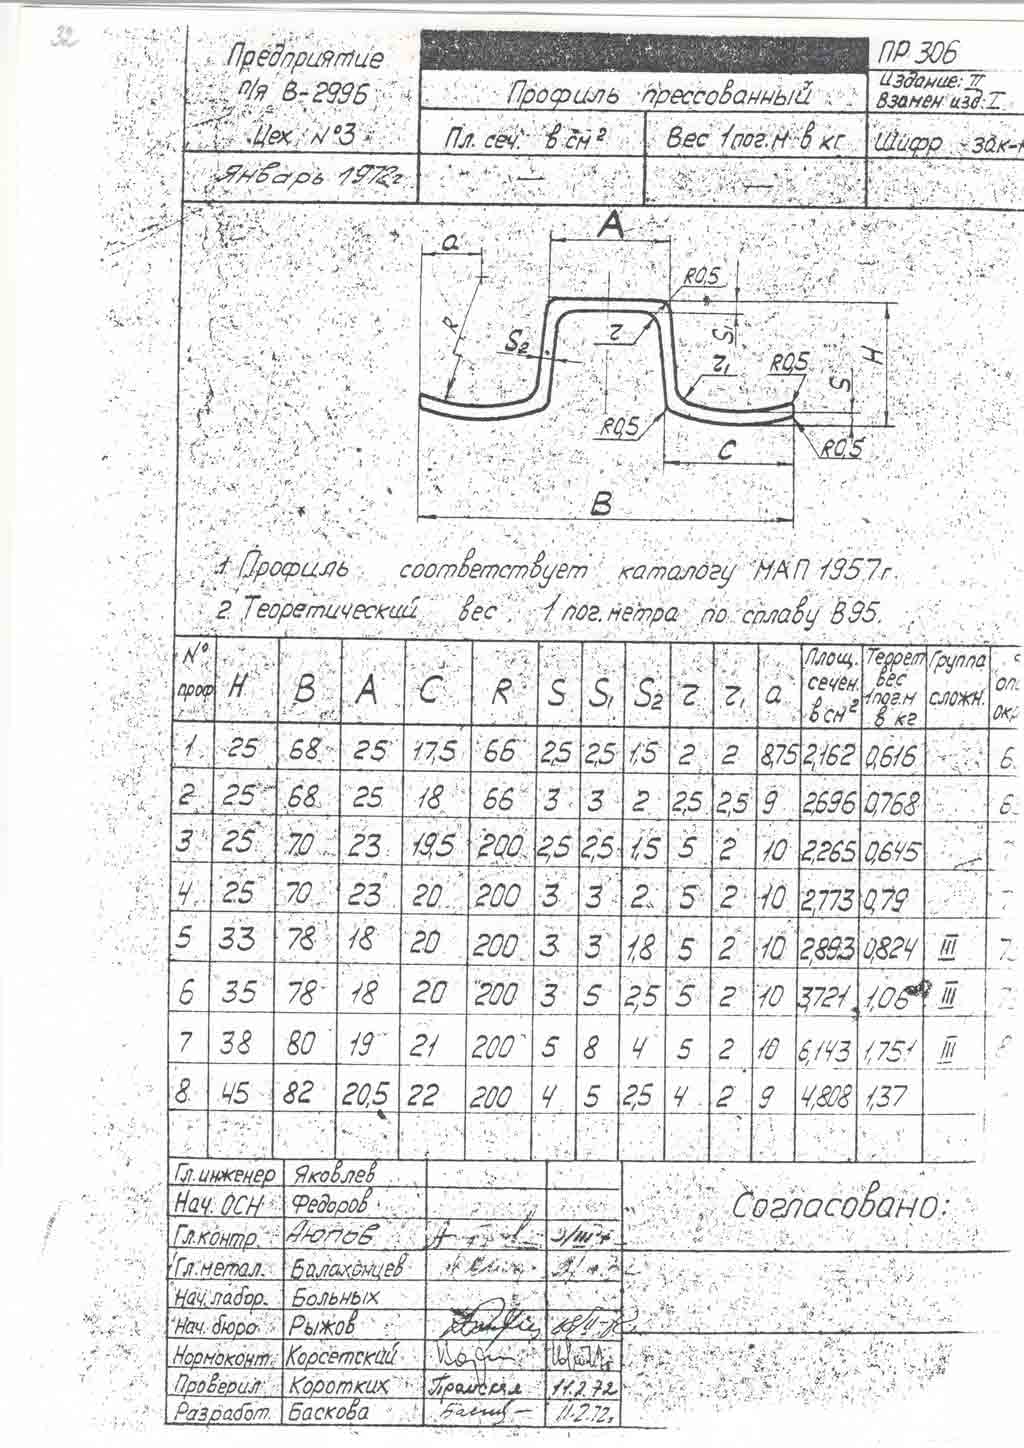 32
Предприятие
п/я В-2996
Цех №3
Январь 1972г
Профиль прессованный
Пл. сеч. в см²
Вес 1 пог. м в кг
—
—
ПР 306
Издание: II
Взамен изд. I
Шифр зак-
a
A
R0,5
R
S₂
r
S₁
r₁
R0,5
S
H
R0,5
C
R0,5
B
1 Профиль соответствует каталогу МАП 1957г.
2. Теоретический вес 1 пог. метра по сплаву В95.
№ проф H B A C R S S₁ S₂ r r₁ a Площ. сечен. в см² Теорет вес 1 пог. м в кг Группа сложн.
1 25 68 25 17,5 66 2,5 2,5 1,5 2 2 8,75 2,162 0,616
2 25 68 25 18 66 3 3 2 2,5 2,5 9 2,696 0,768
3 25 70 23 19,5 200 2,5 2,5 1,5 5 2 10 2,265 0,645
4 25 70 23 20 200 3 3 2 5 2 10 2,773 0,79
5 33 78 18 20 200 3 3 1,8 5 2 10 2,893 0,824 III
6 35 78 18 20 200 3 5 2,5 5 2 10 3,721 1,06 III
7 38 80 19 21 200 5 8 4 5 2 10 6,143 1,751 III
8 45 82 20,5 22 200 4 5 2,5 4 2 9 4,808 1,37
Гл. инженер Яковлев
Нач. ОСН Федоров
Гл. контр. Аюпов
Гл. метал. Балахонцев
Нач. лабор. Больных
Нач. бюро Рыжов
Нормоконт. Корсетский
Проверил Коротких 11.2.72
Разработ. Баскова 11.2.72г
Согласовано: